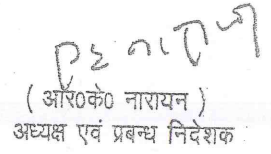 ( आर०के० नारायन )
अध्यक्ष एवं प्रबन्ध निदेशक